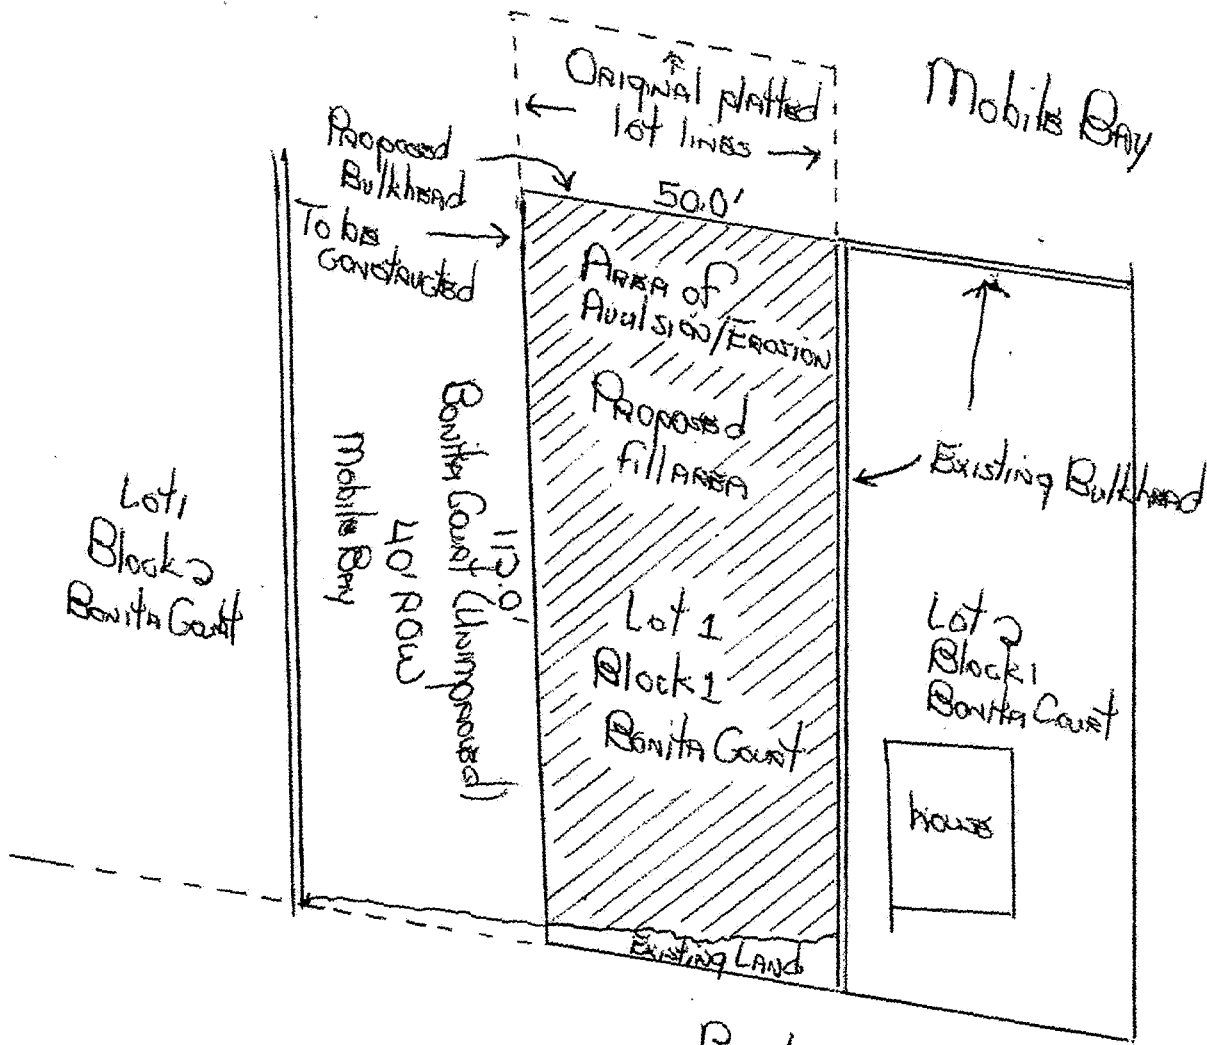 Original platted
lot lines
Mobile Bay
Proposed
Bulkhead
To be
Constructed
50.0'
Area of
Avulsion/Erosion
Proposed
fill area
Existing Bulkhead
Lot 1
Block 2
Bonita Court
Mobile Bay
40' ROW
Bonita Court (Unimproved)
112.0'
Lot 1
Block 1
Bonita Court
Lot 2
Block 1
Bonita Court
House
Existing Land